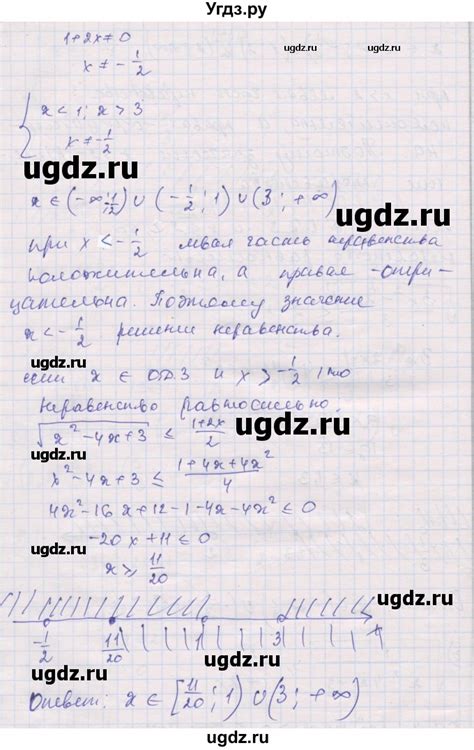 Угдз.ру
1+2x≠0
ugdz.ru
ugdz.ru
x≠-1/2
{ x<1; x>3
x≠-1/2
ugdz.ru
ugdz.ru
x∈(-∞;1/2)∪(-1/2;1)∪(3;+∞)
ugdz.ru
при x<-1/2 левая часть неравенства
положительна, а правая -отри-
цательна. Поэтому значение
x<-1/2 решение неравенства.
ugdz.ru
ugdz.ru
если x∈ОДЗ и x>-1/2, то
неравенство равносильно.
ugdz.ru
√x²-4x+3 ≤ (1+2x)/2
ugdz.ru
x²-4x+3 ≤ (1+4x+4x²)/4
4x²-16x+12-1-4x-4x²≤0
ugdz.ru
ugdz.ru
-20x+11≤0
x≥11/20
ugdz.ru
ugdz.ru
-1/2 11/20 1 3 x
ugdz.ru
ugdz.ru
Ответ: x∈[11/20;1)∪(3;+∞)
ugdz.ru